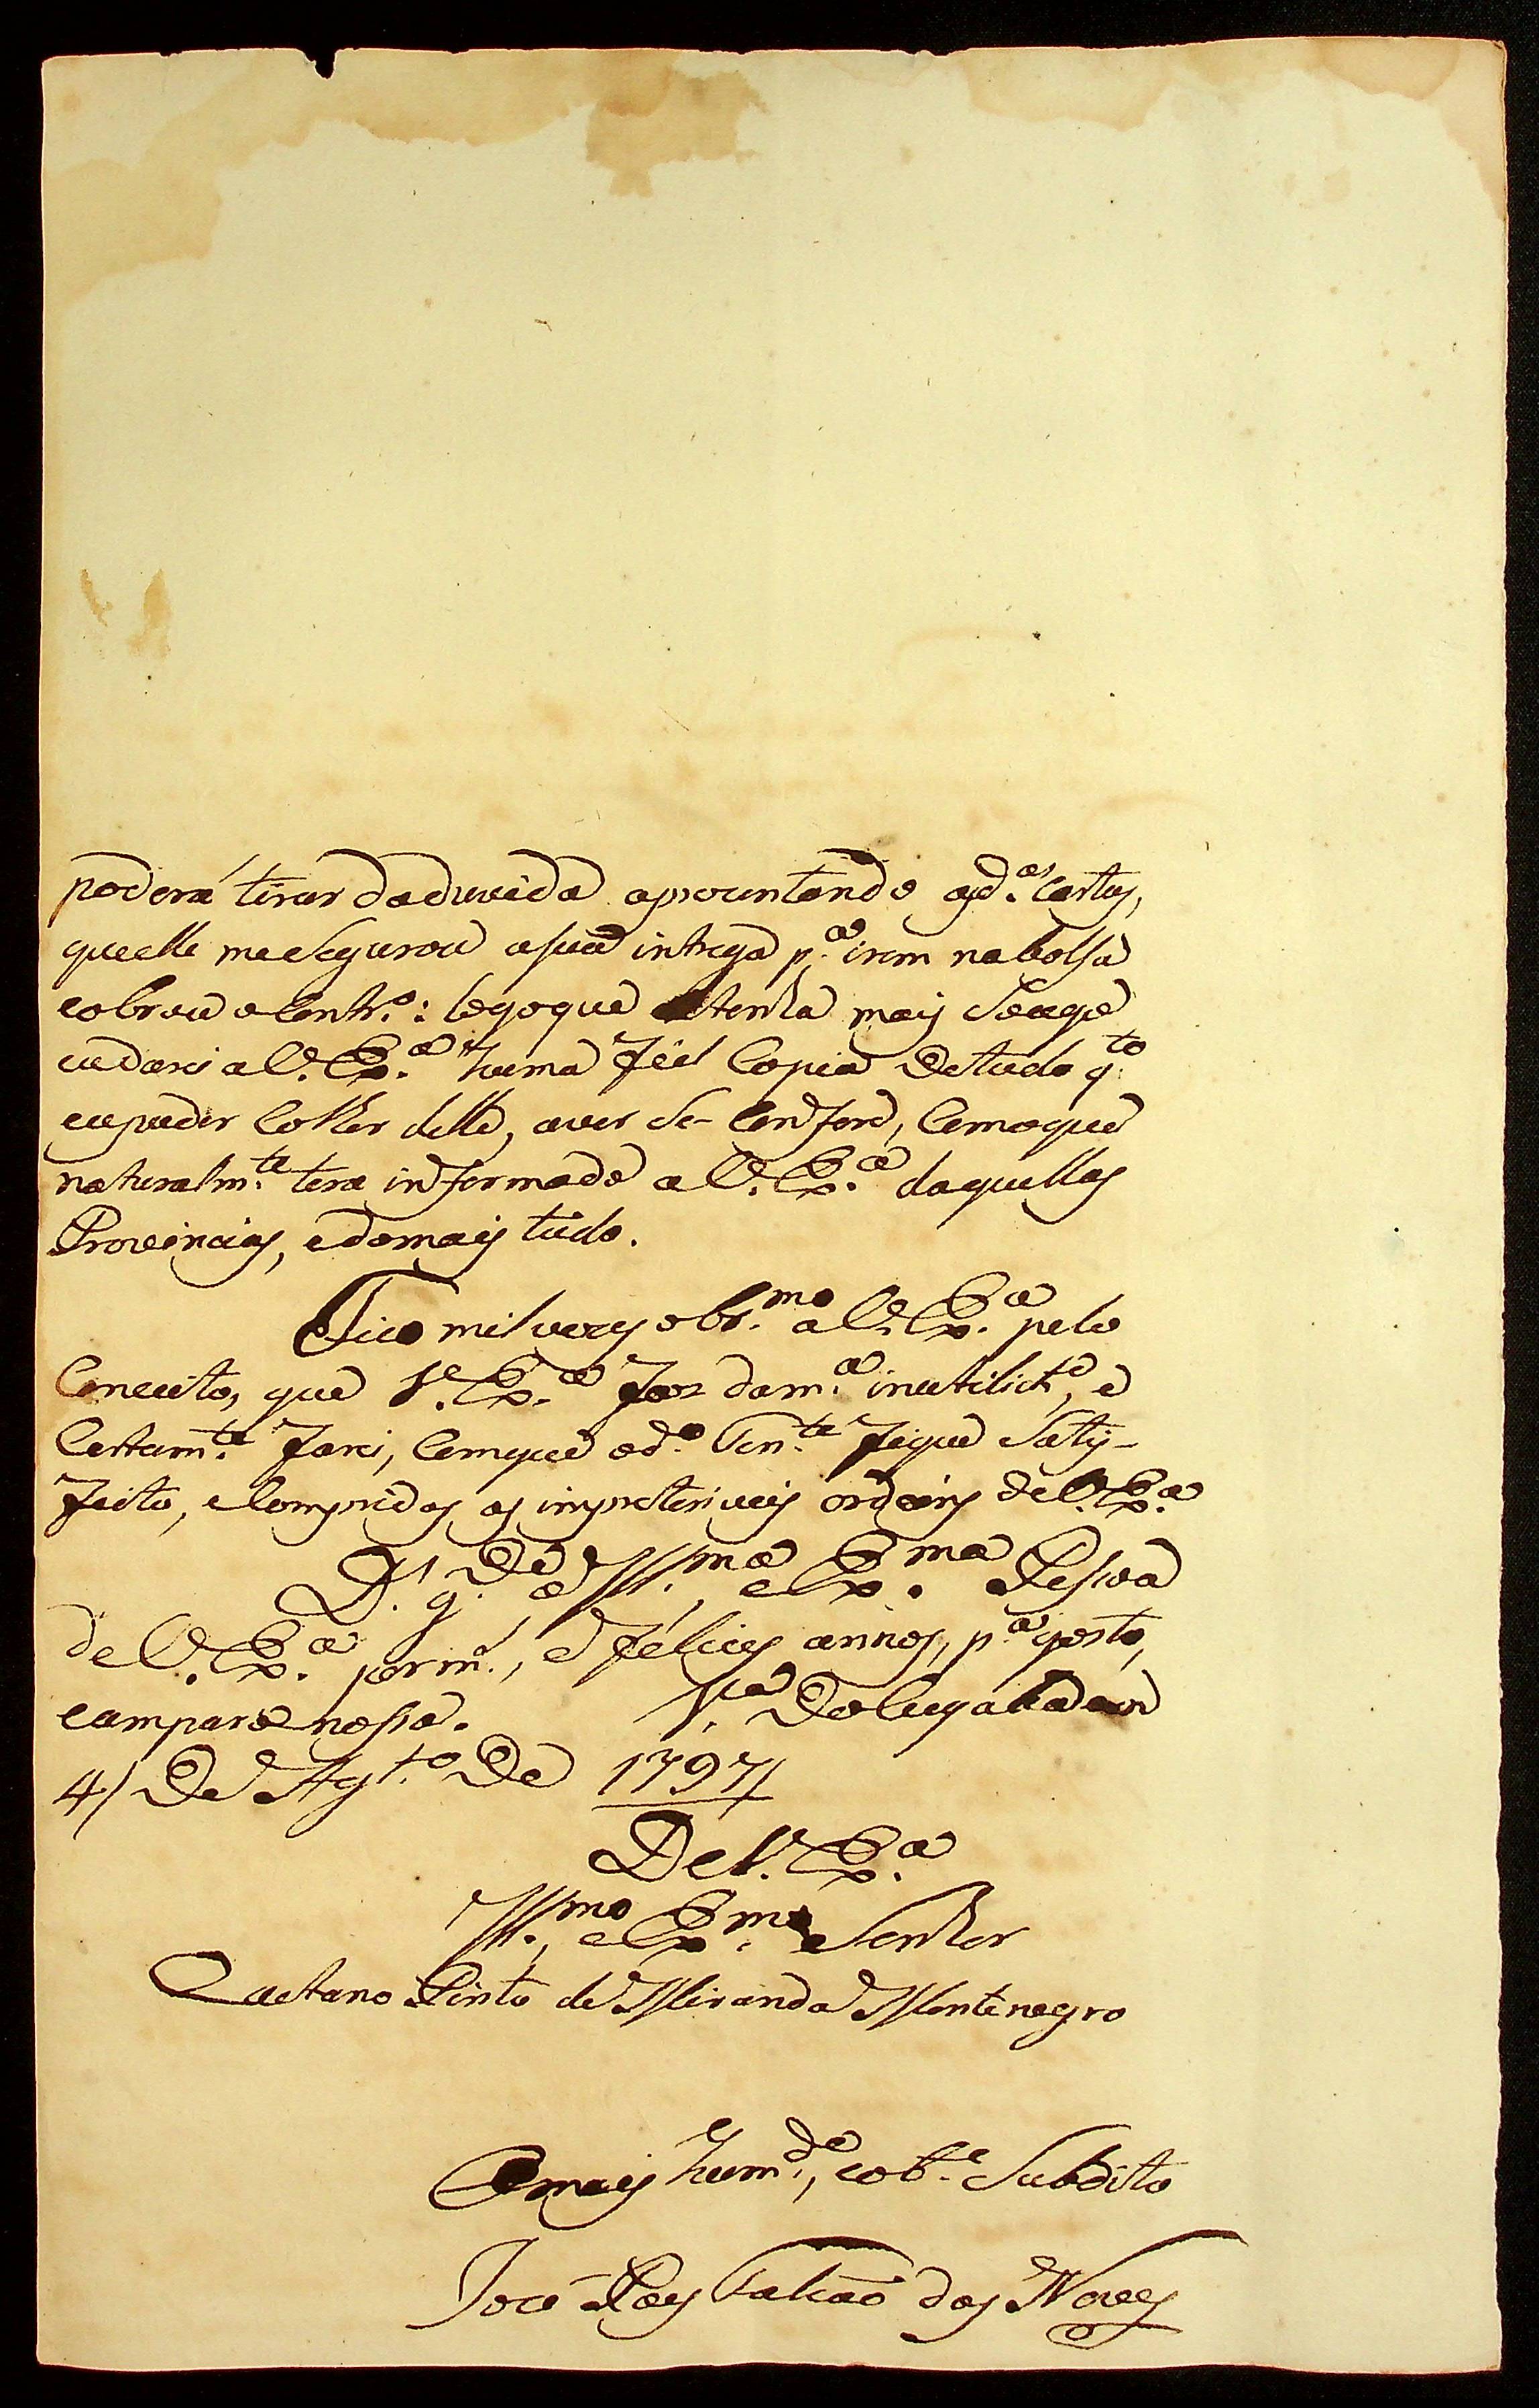 poderá tirar daduvida aprezentando as d.as Cartas,
queelle meSegurou asua intrega p.a irem nabolsa
Logoque tenha mais Socego
eudarei aV. Ex.a huma fiel Copia Detudo q.to
eupuder Colher delle, aver Se- Confere, Comoque
naturalm.te tera informado aV. Ex.a daquellas
Provincias, edomais tudo.
Fico mil vezes obr.mo aV. Ex.a pelo
Conceito, que V. Ex.a Faz dam.a inutilid.e, e
Certam.te Farei, Comque od.o Ten.te Fique Satis-
Feito, eCompridas as impreteriveis ordeins deV. Ex.a
D.s g.de a Ill.ma, eEx.ma Pesoa
deV. Ex.a por m.s, e Felices annos, p.a gosto,
eamparo nosso. V.a Do
4/ De Ag.to De 1797/
DeV. Ex.a
Ill.mo, eEx.mo Senhor
Caetano Pinto de Miranda Montenegro
Omais hum.de, eob.e Subdito
José Paes Falcaõ das Neves